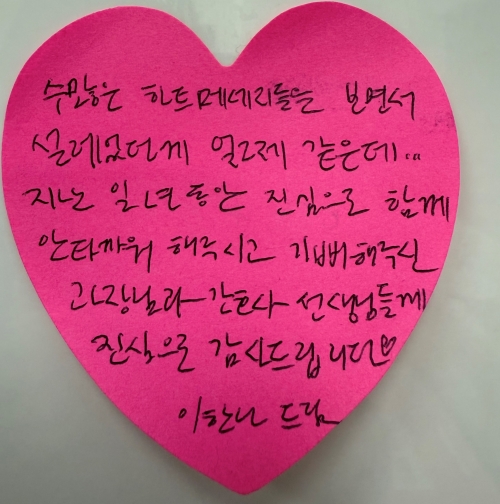 수많은 하트메세지들을 보면서
설레였던게 엊그제 같은데...
지난 일년동안 진심으로 함께
안타까워 해주시고 기뻐해주신
과장님과 간호사 선생님들께
진심으로 감사드립니다♡
이한나 드림